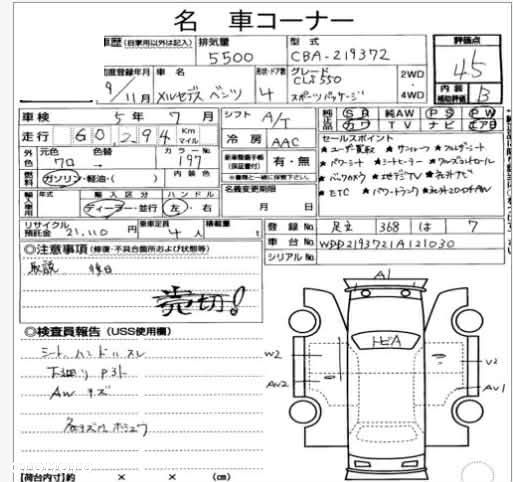 名 車コーナー
車歴 (自家用以外は記入) 排気量 5500 型式 CBA-219372 評価点 4.5
初度登録年月 9/11月 車名 メルセデス ベンツ 形状・ドア数 4 グレード CLS550 スポーツパッケージ 2WD・4WD 内装補助評価 B
車検 5年7月 シフト A/T 純正品 SR カワ 純AW TV PS ナビ PW エアB
走行 60,294 Km マイル 冷房 AAC セールスポイント
外色 元色 クロ 色替 カラーNo. 197 ★ユーザー買取 ★サンルーフ ★フルセグシート
燃料 ガソリン・軽油・( ) 内装色 新車整備手帳(保証書付) 有・無 ★パワーシート ★シートヒーター ★クルーズコントロール
輸入車用 輸入区分 ディーラー・並行 ハンドル 左・右 名義変更期限 月 日 ★バックカメラ ★地デジTV ★社外ナビ
★ETC ★パワートランク ★社外20インチAW
リサイクル預託金 21,110円 乗車定員 4人 積載量 t 登録No. 足立 368 は 7
◎注意事項 (修復・不具合箇所および状態等) 車台No. WDD2193721A121030
取説 後日 シリアルNo.
売切!
A1
◎検査員報告 (USS使用欄)
シート、ハンドルスレ
下廻りサビ
AWキズ
トビA
W2
U2
AW2
AW1
【荷台内寸】約 × × (cm)